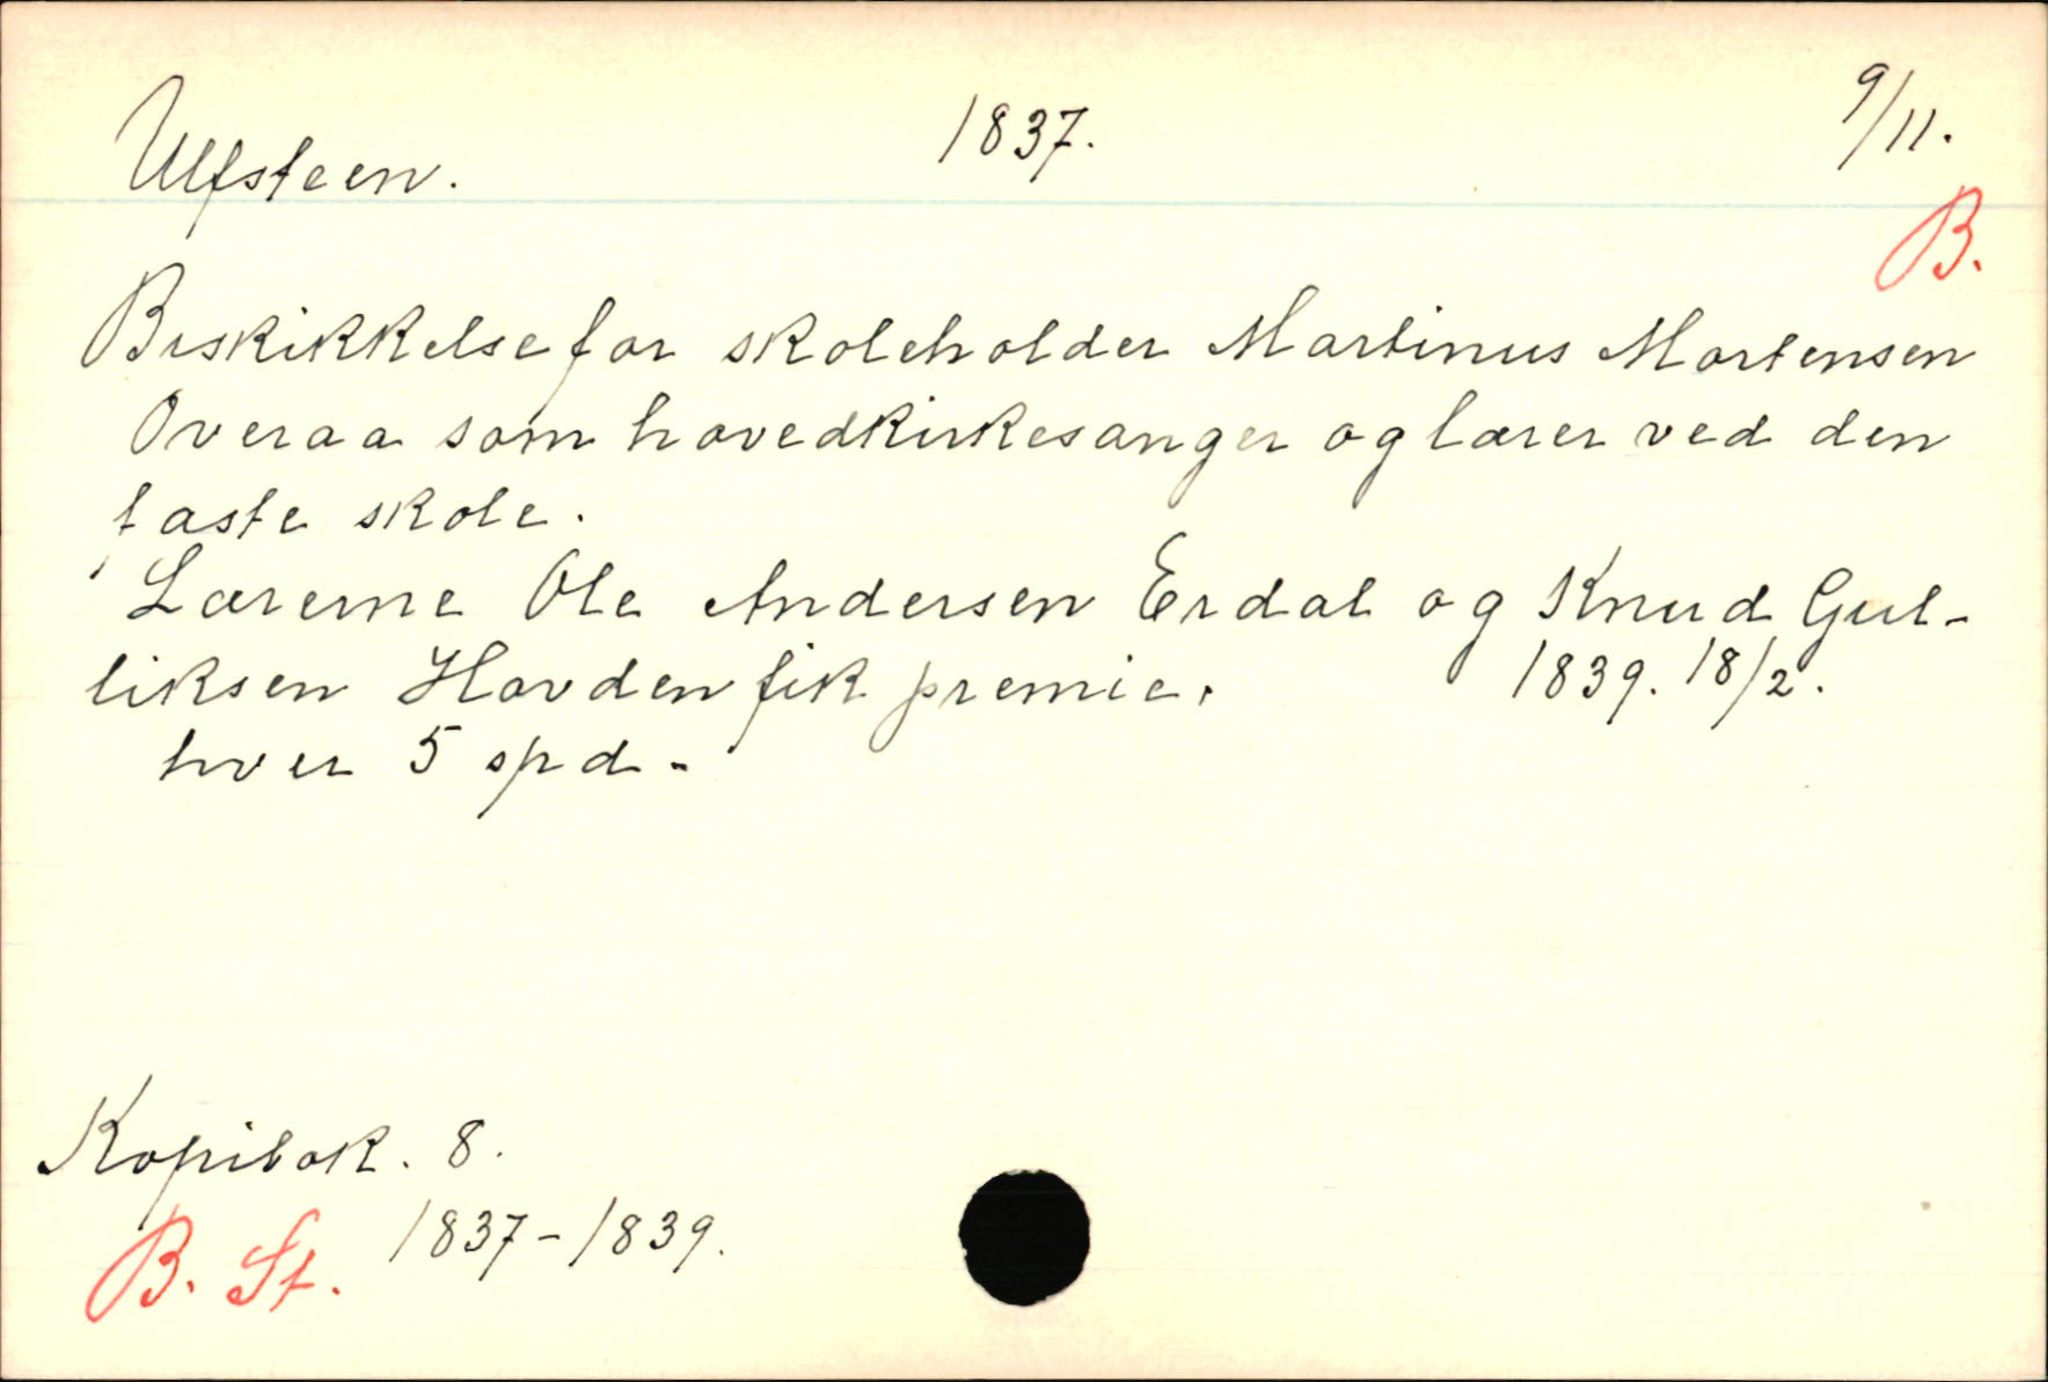 Ulfsteen. 1837. 9/11.
B.
Beskikkelse for skoleholder Martinus Mortensen
Overaa som hovedkirkesanger og lærer ved den
faste skole.
Lærerne Ole Andersen Erdal og Knud Gul-
liksen Hovden fik premie. 1839. 18/2.
hver 5 spd.
Kopibok. 8.
B. St. 1837-1839.